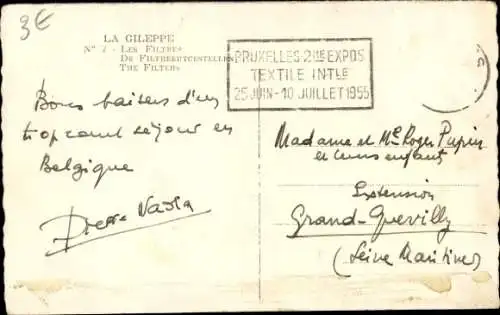 3€
LA GILEPPE
N° 7 - LES FILTRES
DE FILTREERTOESTELLEN
THE FILTERS
BRUXELLES 2me EXPOS
TEXTILE INTLE
25 JUIN - 10 JUILLET 1955
Bons baisers d'un
trop court séjour en
Belgique
Pierre
Madame et Mr Roger Pupin
et leurs enfants
Extension
Grand-Quevilly
(Seine Maritime)